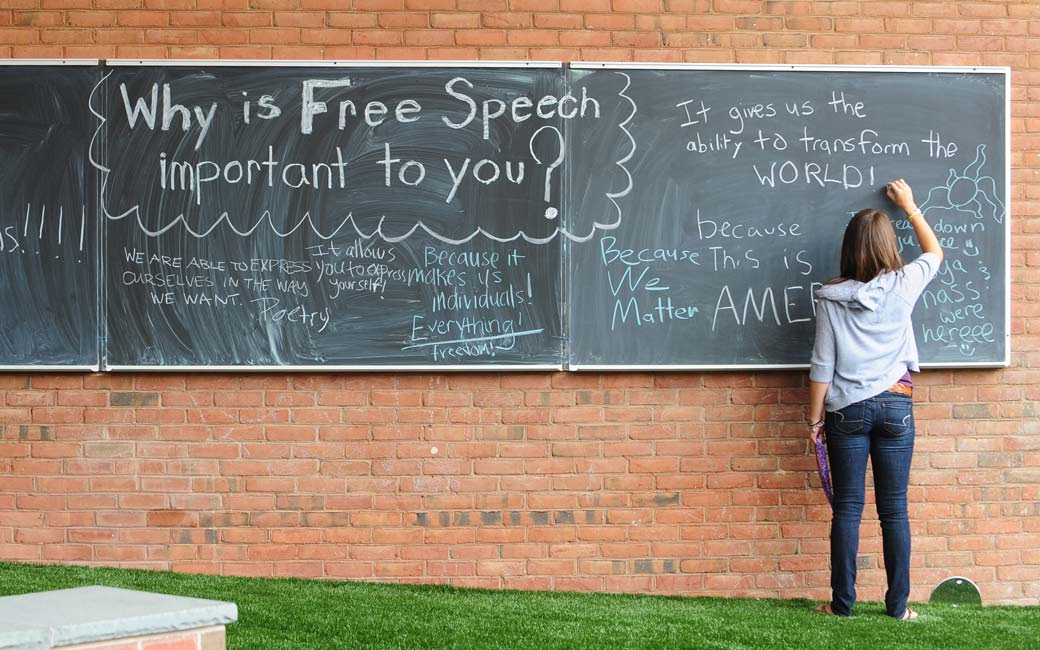 Why is Free Speech
important to you?
!!!!
WE ARE ABLE TO EXPRESS
OURSELVES IN THE WAY
WE WANT.
Poetry
It allows
you to express
yourself!
Because it
makes us
individuals!
Everything!
freedom!
It gives us the
ability to transform the
WORLD!
Because
We
Matter
because
This is
AME
down
ya
were
hereee